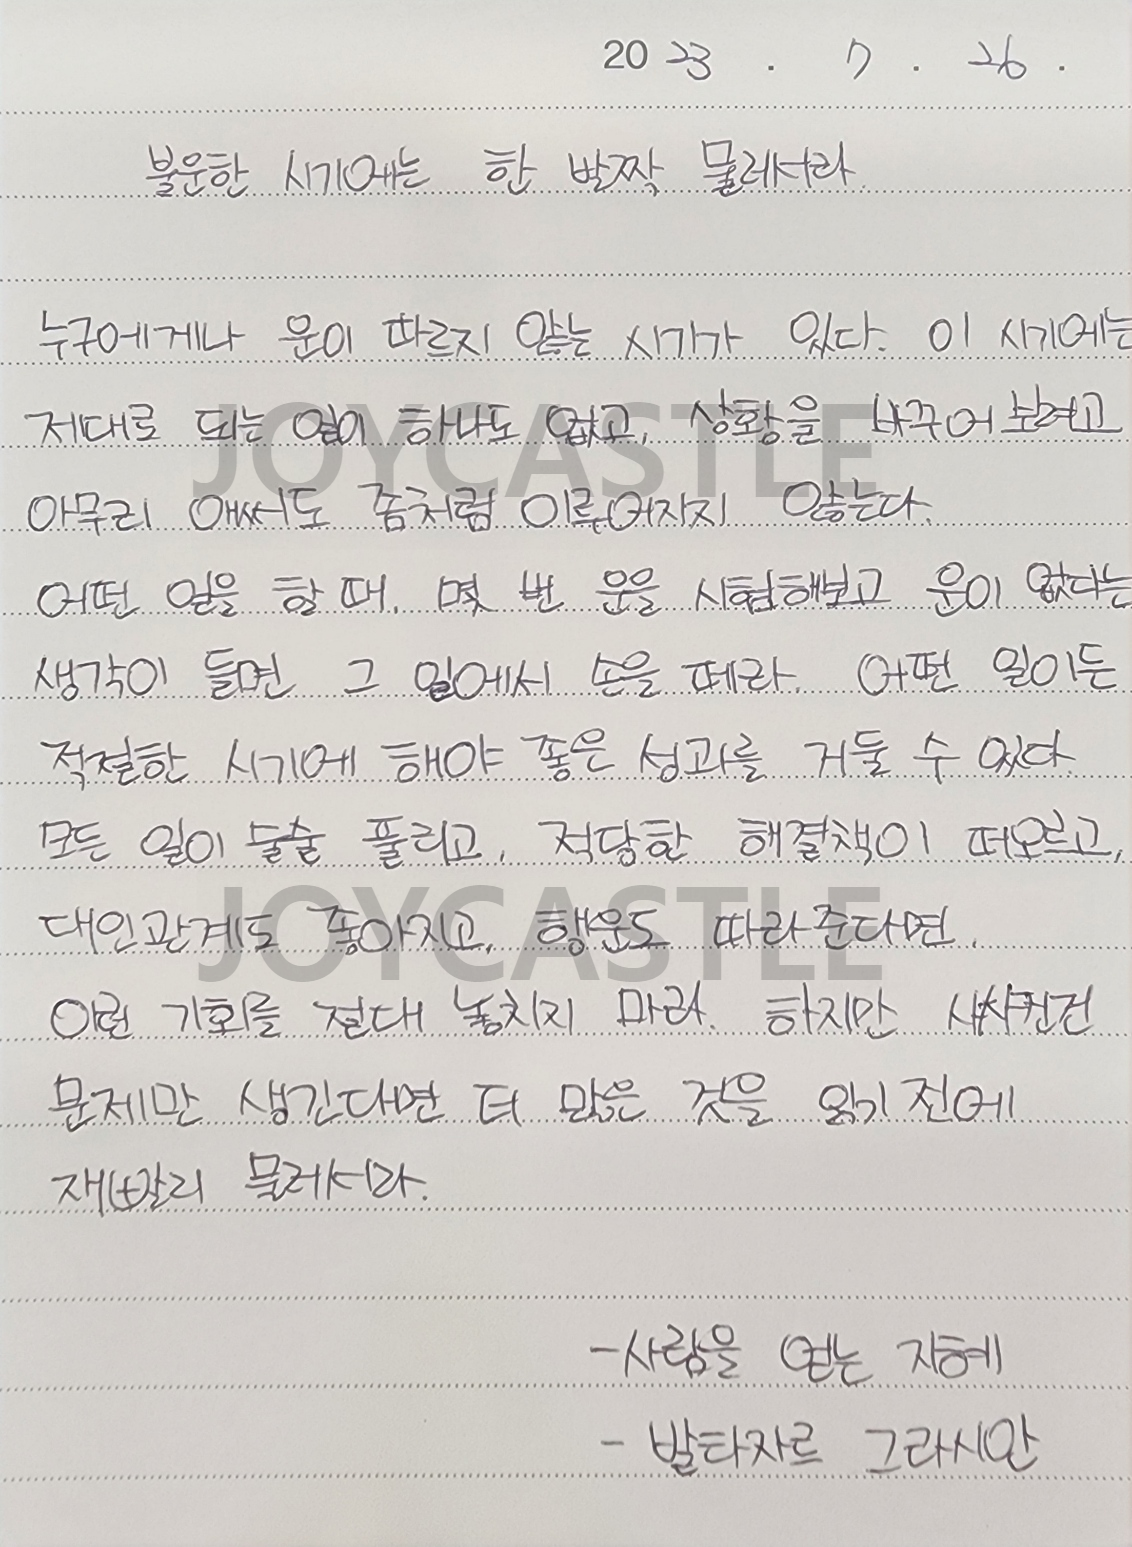 2023 . 7 . 26 .
불운한 시기에는 한 발짝 물러서라
누구에게나 운이 따르지 않는 시기가 있다. 이 시기에는
제대로 되는 일이 하나도 없고, 상황을 바꾸어 보려고
아무리 애써도 좀처럼 이루어지지 않는다.
어떤 일을 할 때, 몇 번 운을 시험해보고 운이 없다는
생각이 들면 그 일에서 손을 떼라. 어떤 일이든
적절한 시기에 해야 좋은 성과를 거둘 수 있다.
모든 일이 술술 풀리고, 적당한 해결책이 떠오르고,
대인관계도 좋아지고, 행운도 따라 준다면,
이런 기회를 절대 놓치지 마라. 하지만 사사건건
문제만 생긴다면 더 많은 것을 잃기 전에
재빨리 물러서라.
-사람을 얻는 지혜
- 발타자르 그라시안
JOYCASTLE
JOYCASTLE